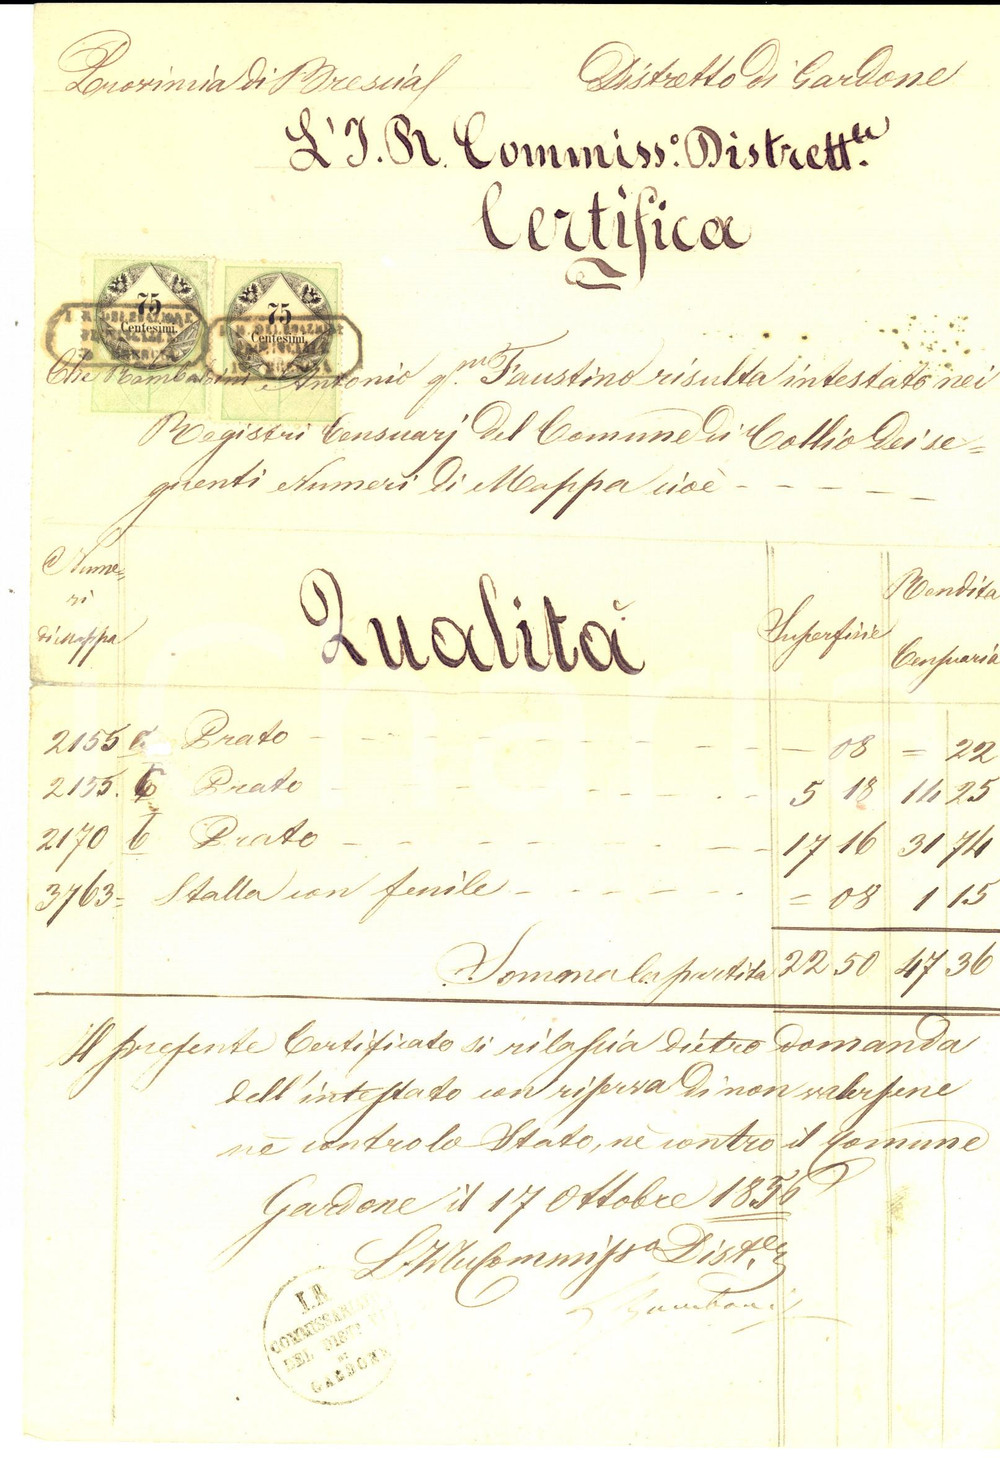 Provincia di Brescia Distretto di Gardone
L'I. R. Commiss.º Distrett.le
Certifica
75 Centesimi. 75 Centesimi.
I. R. DELEGAZIONE PROVINCIALE
Che Antonio q.m Faustino risulta intestato nei
Registri Censuarj del Comune di Collio dei se=
guenti Numeri di Mappa cioè - - - - -
Nume=
ri
di Mappa Qualità Superficie Rendita
Censuaria
2155 a Prato - - - - - - - - - 08 = 22
2155. b Prato - - - - - 5 18 14 25
2170 b Prato - - - - - - 17 16 31 74
3763= Stalla con fenile - - - - - = 08 1 15
Somma la partita 22 50 47 36
Il presente Certificato si rilascia dietro domanda
dell'intestato con riserva di non valersene
nè contro lo Stato, nè contro il Comune
Gardone il 17 Ottobre 1856
Commiss.o Dist.
I. R.
COMMISSARIATO
DEL DIST.
DI
GARDONE